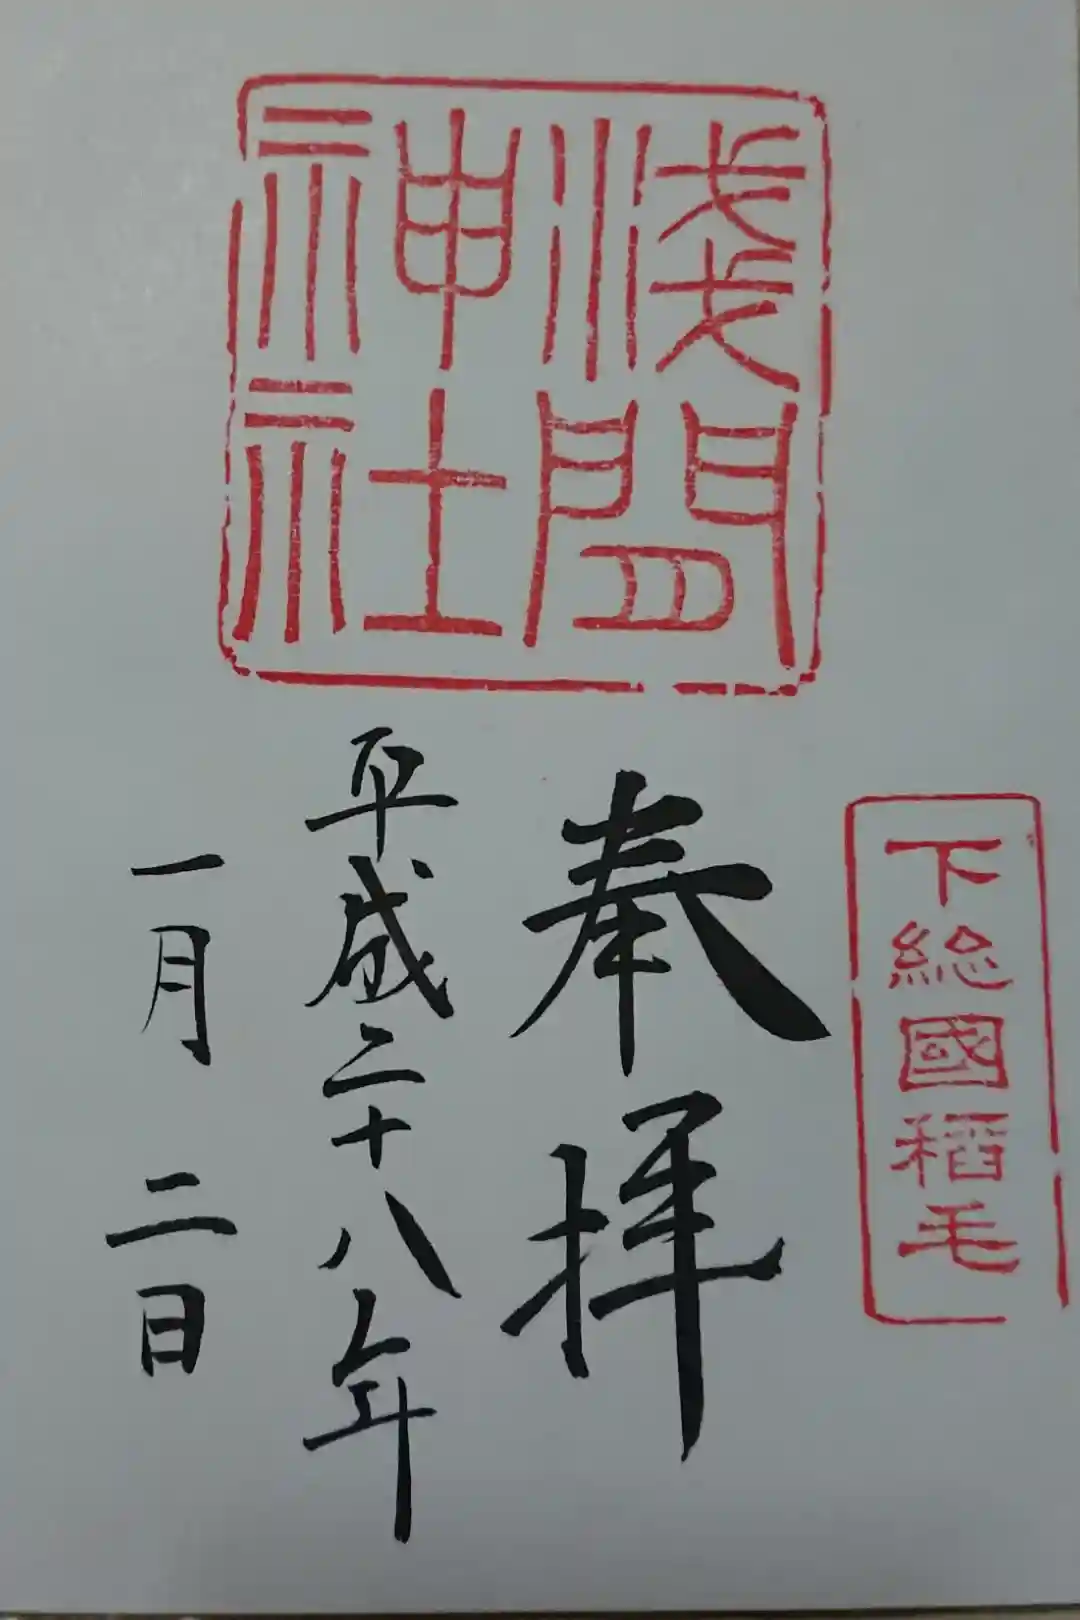 淺間
神社
下総國稲毛
奉拝
平成二十八年
一月二日